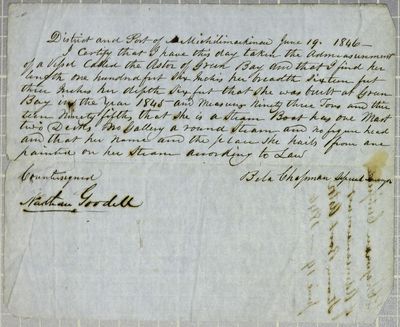 District and Port of Michilimackinac June 19. 1846—
I Certify that I have this day taken the Admeasurement
of a Vessel Called the Astor of Green Bay and that I find her
length one hundred feet Six Inches her breadth Sixteen feet
three Inches her depth Six feet that she was built at Green
Bay in the Year 1845 and Measures Ninety three Tons and
teen Ninety fifths that she is a Steam Boat has one Mast
two Decks No Gallery a round Stearn and no figure head
and that her Name and the place She hails from are
painted on her Stearn according to Law
Countersigned
Bela Chapman
Nathan Goodell